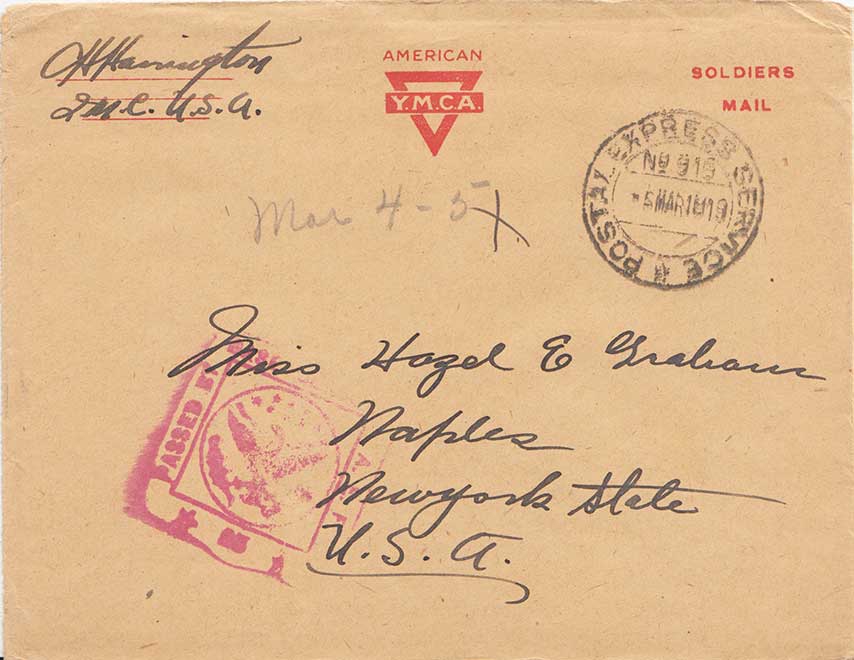 H Harrington
Q M. C. U.S.A.
AMERICAN
Y.M.C.A.
SOLDIERS
MAIL
POSTAL EXPRESS SERVICE
No 919
5 MAR 1919
Mar 4-5
Miss Hazel E Graham
Naples
Newyork State
U. S. A.
PASSED
A.